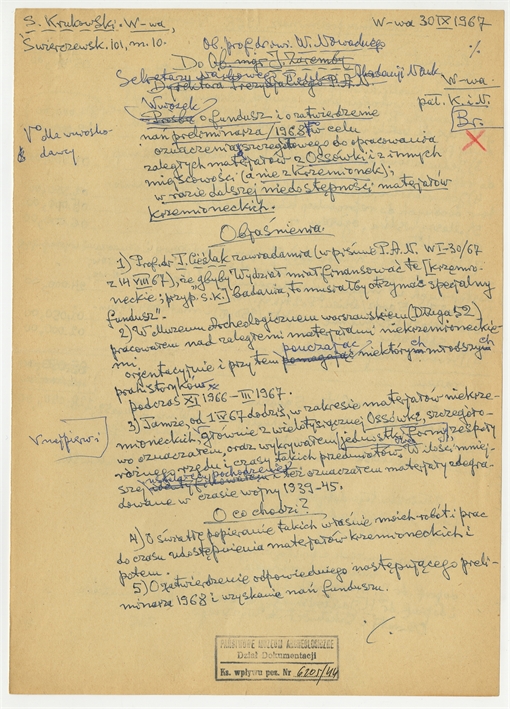 S. Krukowski. W-wa,
W-wa 30 IX 1967
Świerczewsk. 101, m. 10.
Ob. prof. drowi. W. Nowackiego
Do Ob. mgr J. Zaremby
Sekretarzy naukowego Polskiej Akademji Nauk
Dyrektora P.A.N.
W-wa.
pał. K. i N.
Br.
Wniosek
Prośba o fundusz i o zatwierdzenie
nań preliminarza /1968 w celu
oznaczenia szczegółowego do opracowania
zaległych materjałów z Ossówki i z innych
miejscowości (a nie z Krzemionek);
w razie dalszej niedostępności materjałów
krzemioneckich.
Vº dla wniosko-
dawcy
Objaśnienia
1) Prof. dr T. Cieślak zawiadamia (w piśmie P.A.N. WI-30/67
z 14 VIII 67), że „gdyby Wydział miał finansować te [krzemio-
neckie; przyp. S.K.] badania, to musiałby otrzymać specjalny
fundusz".
2) W Muzeum Archeologicznem warszawskiem (Długa 52)
pracowałem nad zaległemi materjałami niekrzemionecki-
mi,
pouczając
orjentacyjnie i przytem pomagając niektórych młodszych
prahistoryków
podczas XI 1966 – III 1967.
3) Tamże, od 1 IV 67 dodziś, w zakresie materjałów niekrze-
mioneckich, głównie z wielotysięcznej Ossówki, szczegóło-
wo oznaczałem, oraz wykrywałem jednostki formy, zespoły
różnego rzędu i czasy takich przedmiotów. W ilości mniej-
szej też oznaczałem materjały zdegra-
dowane w czasie wojny 1939–45.
V najpierwi
O co chodzi?
4) O światłe popieranie takich właśnie moich robót i prac
do czasu udostępnienia materjałów krzemioneckich i
potem.
5) O zatwierdzenie odpowiedniego następującego preli-
minarza 1968 i uzyskanie nań funduszu.
PAŃSTWOWE MUZEUM ARCHEOLOGICZNE
Dział Dokumentacji
Ks. wpływu poz. Nr 6205/44